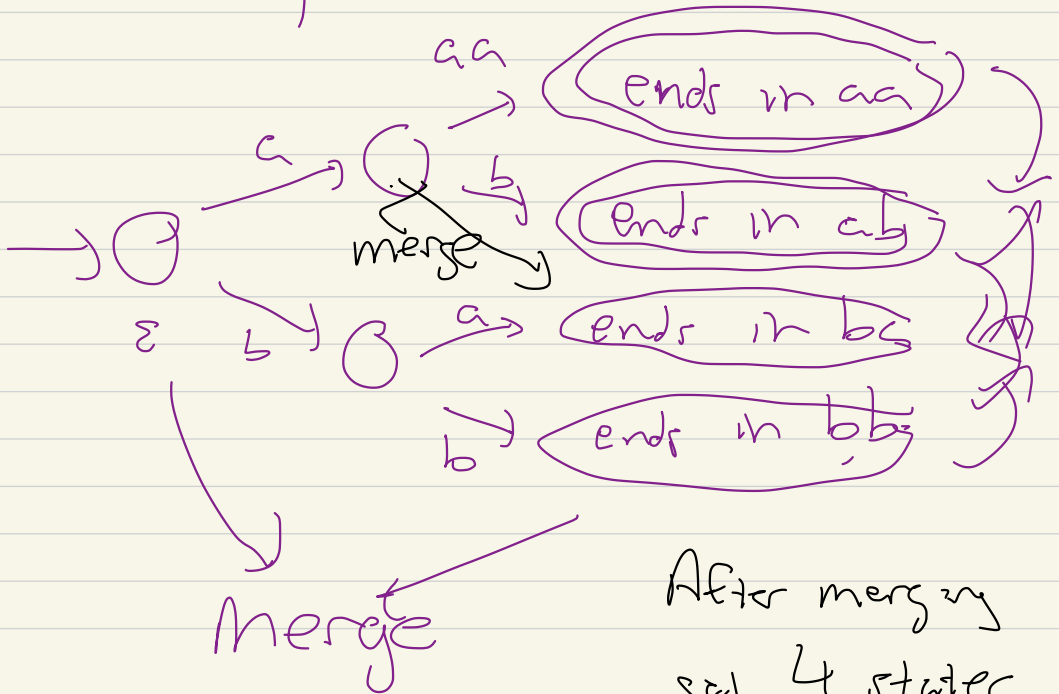 aa
ends in aa
a
b
ends in ab
merge
ε
b
a
ends in ba
b
ends in bb
Merge
After merging
4 states